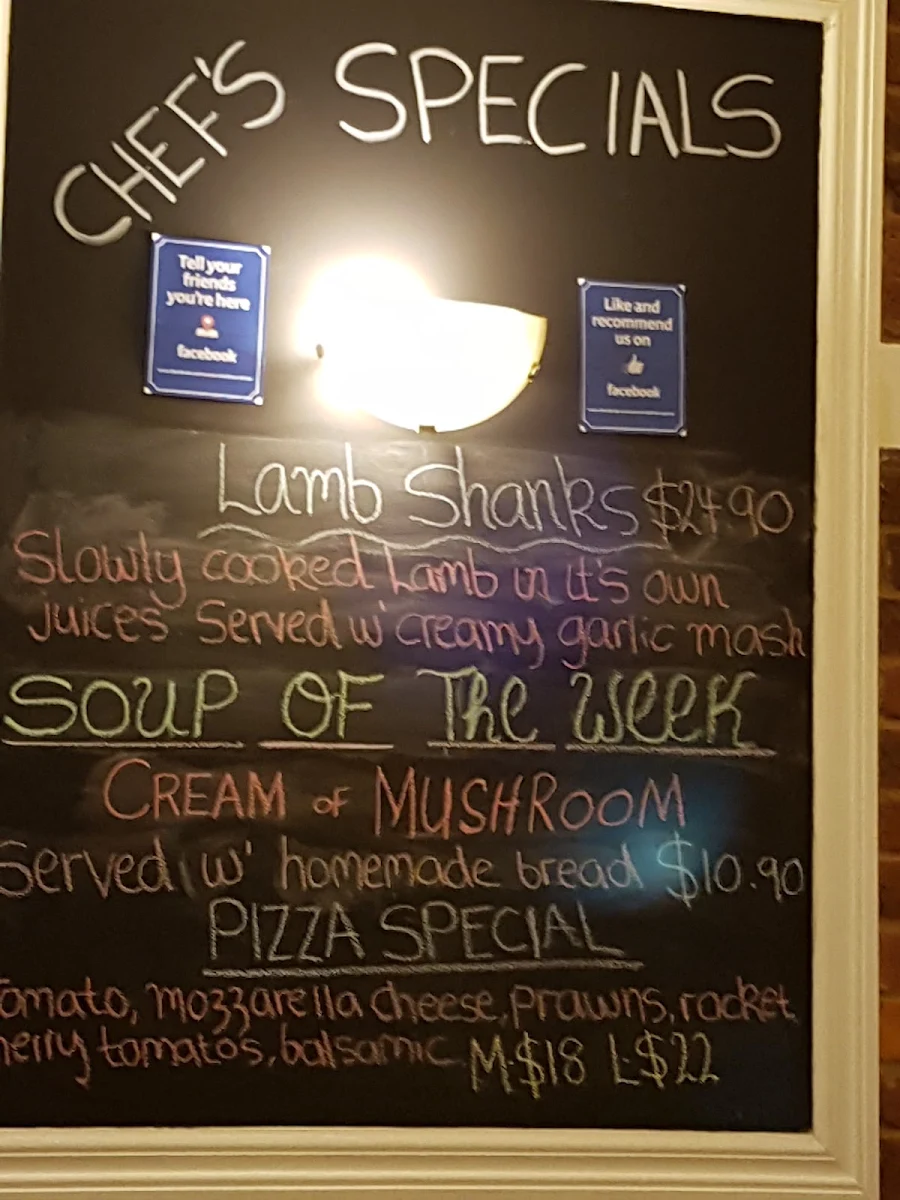 CHEF'S SPECIALS
Tell your
friends
you're here
facebook
Like and
recommend
us on
facebook
Lamb Shanks $24.90
Slowly cooked Lamb in it's own
juices Served w' creamy garlic mash
SOUP OF The WEEK
CREAM OF MUSHROOM
Served w' homemade bread $10.90
PIZZA SPECIAL
omato, mozzarella cheese, prawns, rocket,
herry tomatos, balsamic M-$18 L-$22